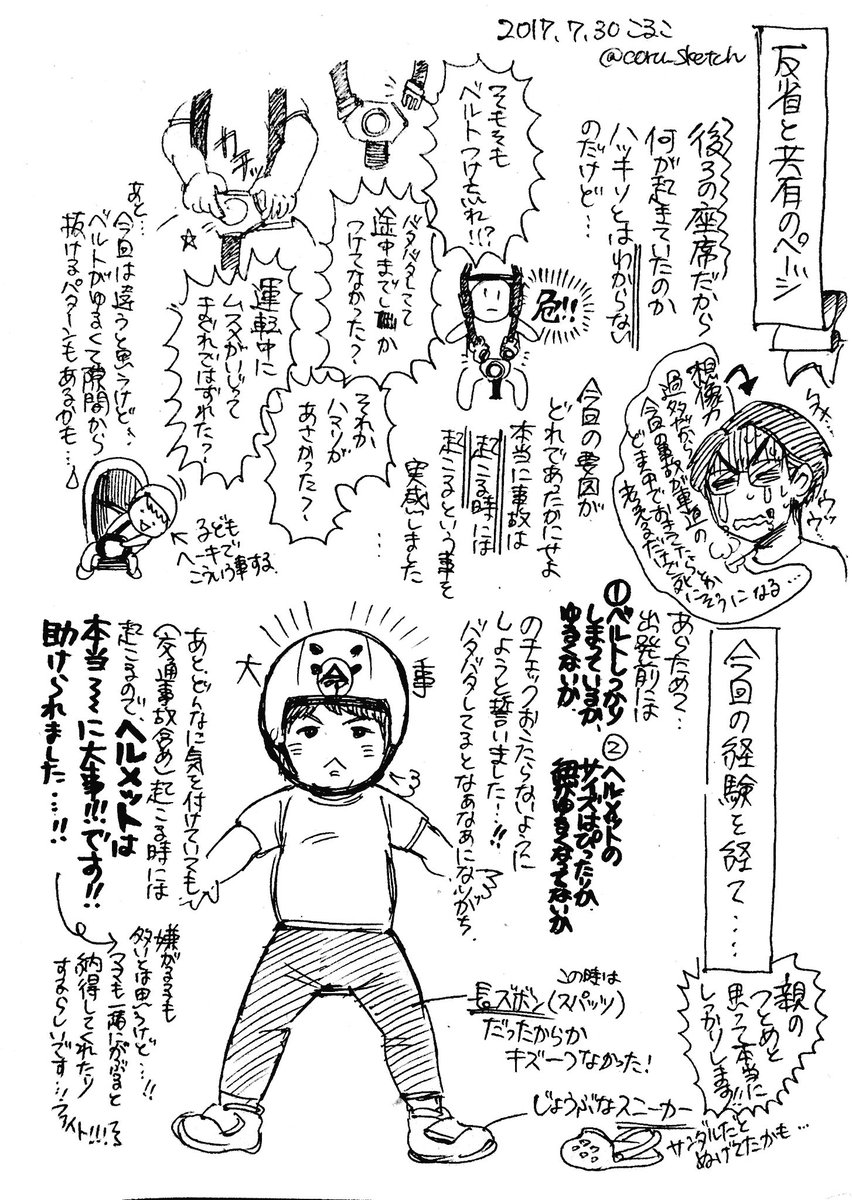 2017.7.30 こるこ
@coru_sketch
反省と共有のページ
後ろの座席だから
何が起きていたのか
ハッキリとはわからない
のだけど…
そもそも
ベルトつけ忘れ!!?
バタバタしてて
途中までしか
つけてなかった?
カチッ
運転中に
ムスメがいじって
まぐれではずれた?
それか
ハマりが
あさかった?
あと…
今回は違うと思うけど、
ベルトがゆるくて隙間から
抜けるパターンもあるかも…
危!!
こども
ヘーキで
こういう事する
今回の要因が
どれであったかにせよ
本当に事故は
起こる時には
起こるという事を
実感しました
…
想像力
過多だから
今回の事故が車道の
ど真中でおきてたらとか
考えるだけで
死にそうになる…
ウッウッ
今回の経験を経て…..
あらためて…
出発前には
①ベルトしっかり
しまっているか、
ゆるくないか
②ヘルメットの
サイズはぴったりか
紐がゆるくなってないか
のチェックおこたらないように
しようと誓いました…!!
バタバタしてるとなあなあになりがち
親の
つとめと
思って本当に
しっかりします!!
大事
命
あと、どんなに気を付けていても
(交通事故含め)起こる時には
起こるので、ヘルメットは
本当〜に大事!!!です!!
助けられました…!!
嫌がる子も
多いとは思うけど…!!
ママも一緒にかぶると
納得してくれたり
するらしいです…!!
ファイト!!!
この時は
長ズボン(スパッツ)
だったからか
キズ一つなかった!
じょうぶなスニーカー
サンダルだと
ぬげてたかも…